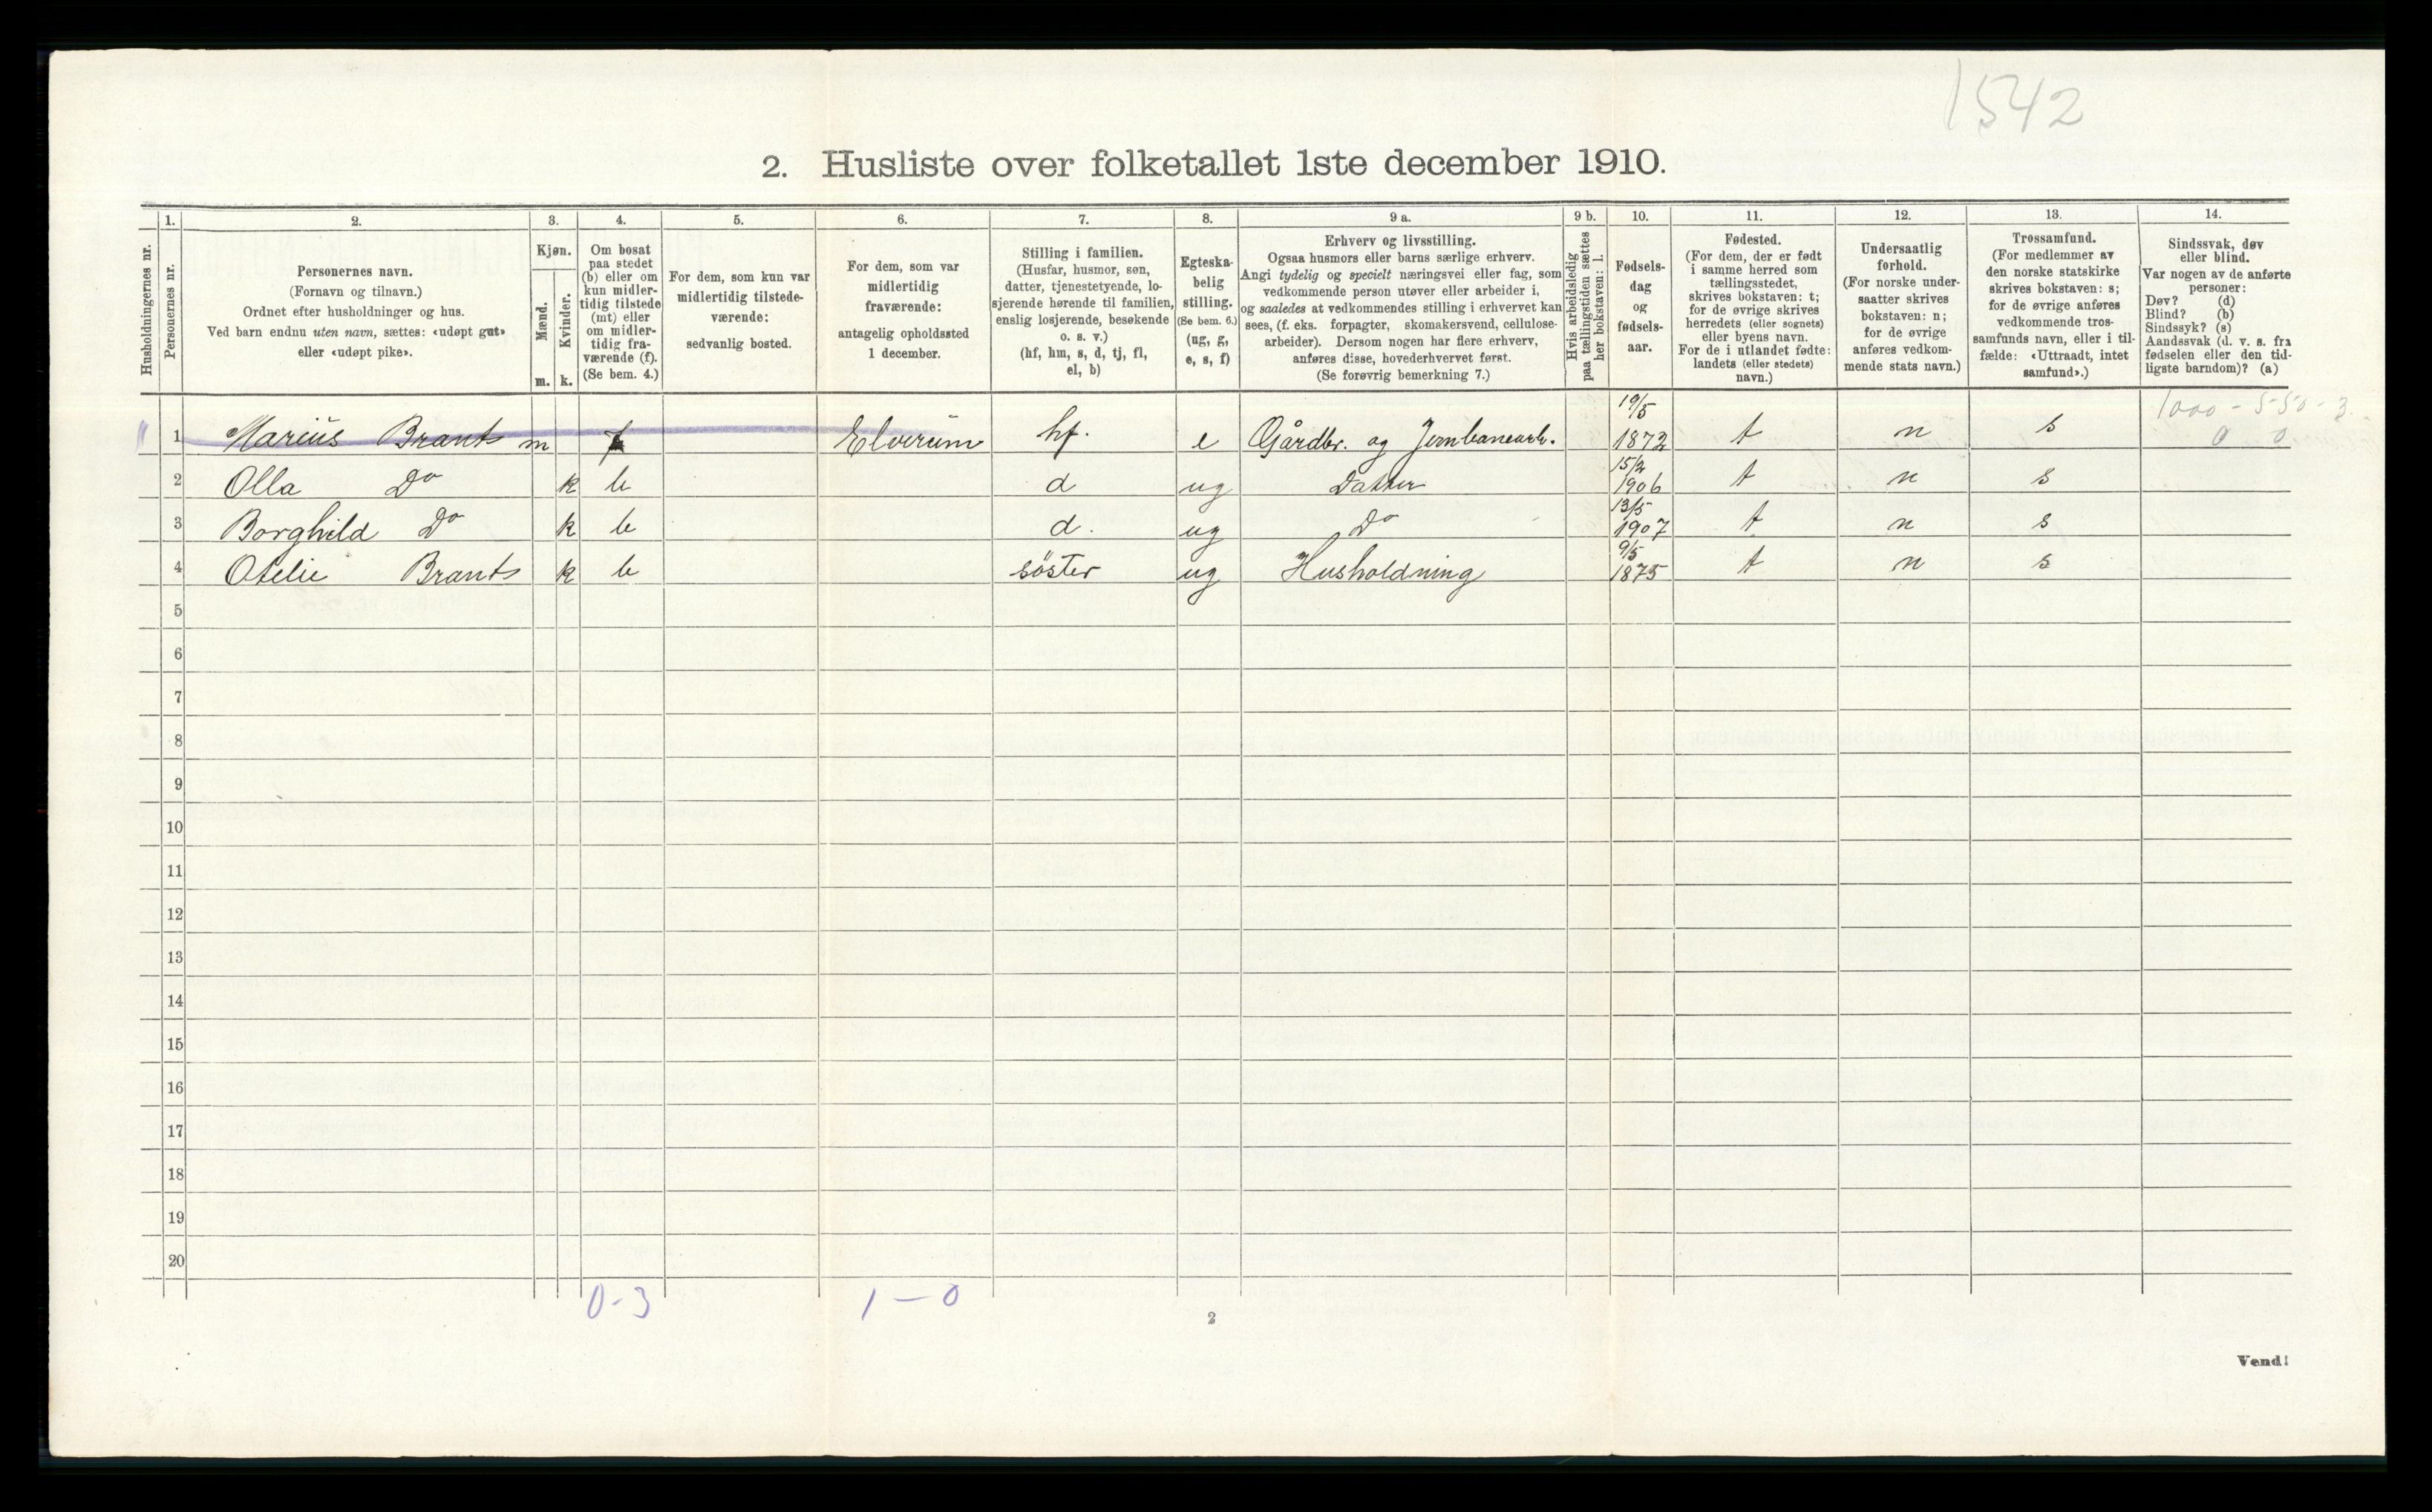 1542
2. Husliste over folketallet 1ste december 1910.
Husholdningernes nr.
1.
Personernes nr.
2.
Personernes navn.
(Fornavn og tilnavn.)
Ordnet efter husholdninger og hus.
Ved barn endnu uten navn, sættes: «udøpt gut»
eller «udøpt pike».
3.
Kjøn.
Mænd.
m.
Kvinder.
k.
4.
Om bosat
paa stedet
(b) eller om
kun midler-
tidig tilstede
(mt) eller
om midler-
tidig fra-
værende (f).
(Se bem. 4.)
5.
For dem, som kun var
midlertidig tilstede-
værende:
sedvanlig bosted.
6.
For dem, som var
midlertidig
fraværende:
antagelig opholdssted
1 december.
7.
Stilling i familien.
(Husfar, husmor, søn,
datter, tjenestetyende, lo-
sjerende hørende til familien,
enslig losjerende, besøkende
o. s. v.)
(hf, hm, s, d, tj, fl,
el, b)
8.
Egteska-
belig
stilling.
(Se bem. 6.)
(ug, g,
e, s, f)
9 a.
Erhverv og livsstilling.
Ogsaa husmors eller barns særlige erhverv.
Angi tydelig og specielt næringsvei eller fag, som
vedkommende person utøver eller arbeider i,
og saaledes at vedkommendes stilling i erhvervet kan
sees, (f. eks. forpagter, skomakersvend, cellulose-
arbeider). Dersom nogen har flere erhverv,
anføres disse, hovederhvervet først.
(Se forøvrig bemerkning 7.)
9 b.
Hvis arbeidsledig
paa tællingstiden sættes
her bokstaven: l.
10.
Fødsels-
dag
og
fødsels-
aar.
11.
Fødested.
(For dem, der er født
i samme herred som
tællingsstedet,
skrives bokstaven: t;
for de øvrige skrives
herredets (eller sognets)
eller byens navn.
For de i utlandet fødte:
landets (eller stedets)
navn.)
12.
Undersaatlig
forhold.
(For norske under-
saatter skrives
bokstaven: n;
for de øvrige
anføres vedkom-
mende stats navn.)
13.
Trossamfund.
(For medlemmer av
den norske statskirke
skrives bokstaven: s;
for de øvrige anføres
vedkommende tros-
samfunds navn, eller i til-
fælde: «Uttraadt, intet
samfund».)
14.
Sindssvak, døv
eller blind.
Var nogen av de anførte
personer:
Døv? (d)
Blind? (b)
Sindssyk? (s)
Aandssvak (d. v. s. fra
fødselen eller den tid-
ligste barndom)? (a)
1000 - 550 - 3
0 0
1 Marius Brants m f Elverum hf. e Gårdbr. og Jernbanearb. 19/5 1872 t n s
2 Olla Do k b d ug Datter 15/2 1906 t n s
3 Borghild Do k b d. ug Do 13/5 1907 t n s
4 Otelie Brants k b söster ug Husholdning 9/5 1875 t n s
5
6
7
8
9
10
11
12
13
14
15
16
17
18
19
20
0-3 1-0
2
Vend!